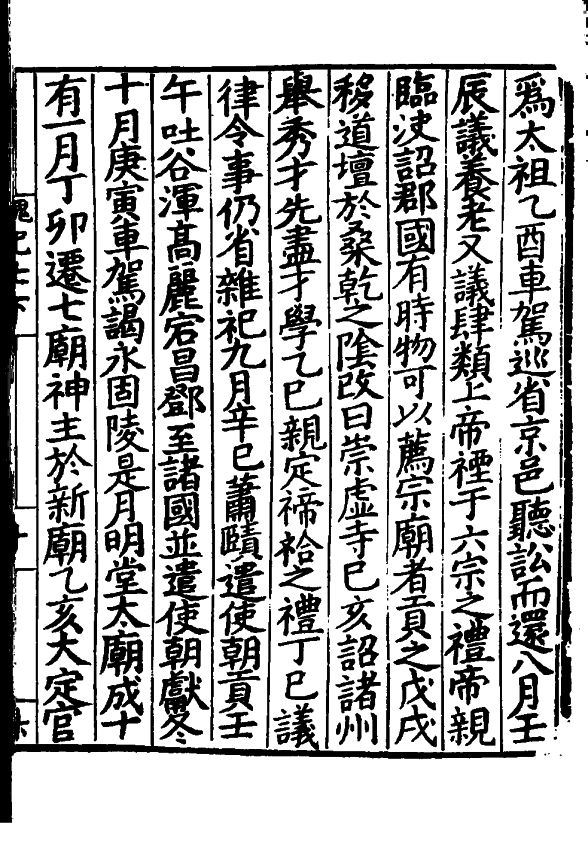 爲太祖乙酉車駕巡省京邑聽訟而還八月壬
辰議養老又議肆類上帝禋于六宗之禮帝親
臨決詔郡國有時物可以薦宗廟者貢之戊戌
移道壇於桑乾之陰改曰崇虛寺巳亥詔諸州
舉秀才先盡才學乙巳親定禘祫之禮丁巳議
律令事仍省雜祀九月辛巳蕭賾遣使朝貢壬
午吐谷渾髙麗宕昌鄧至諸國並遣使朝獻冬
十月庚寅車駕謁永固陵是月明堂太廟成十
有一月丁卯遷七廟神主於新廟乙亥大定官
魏紀七下
十